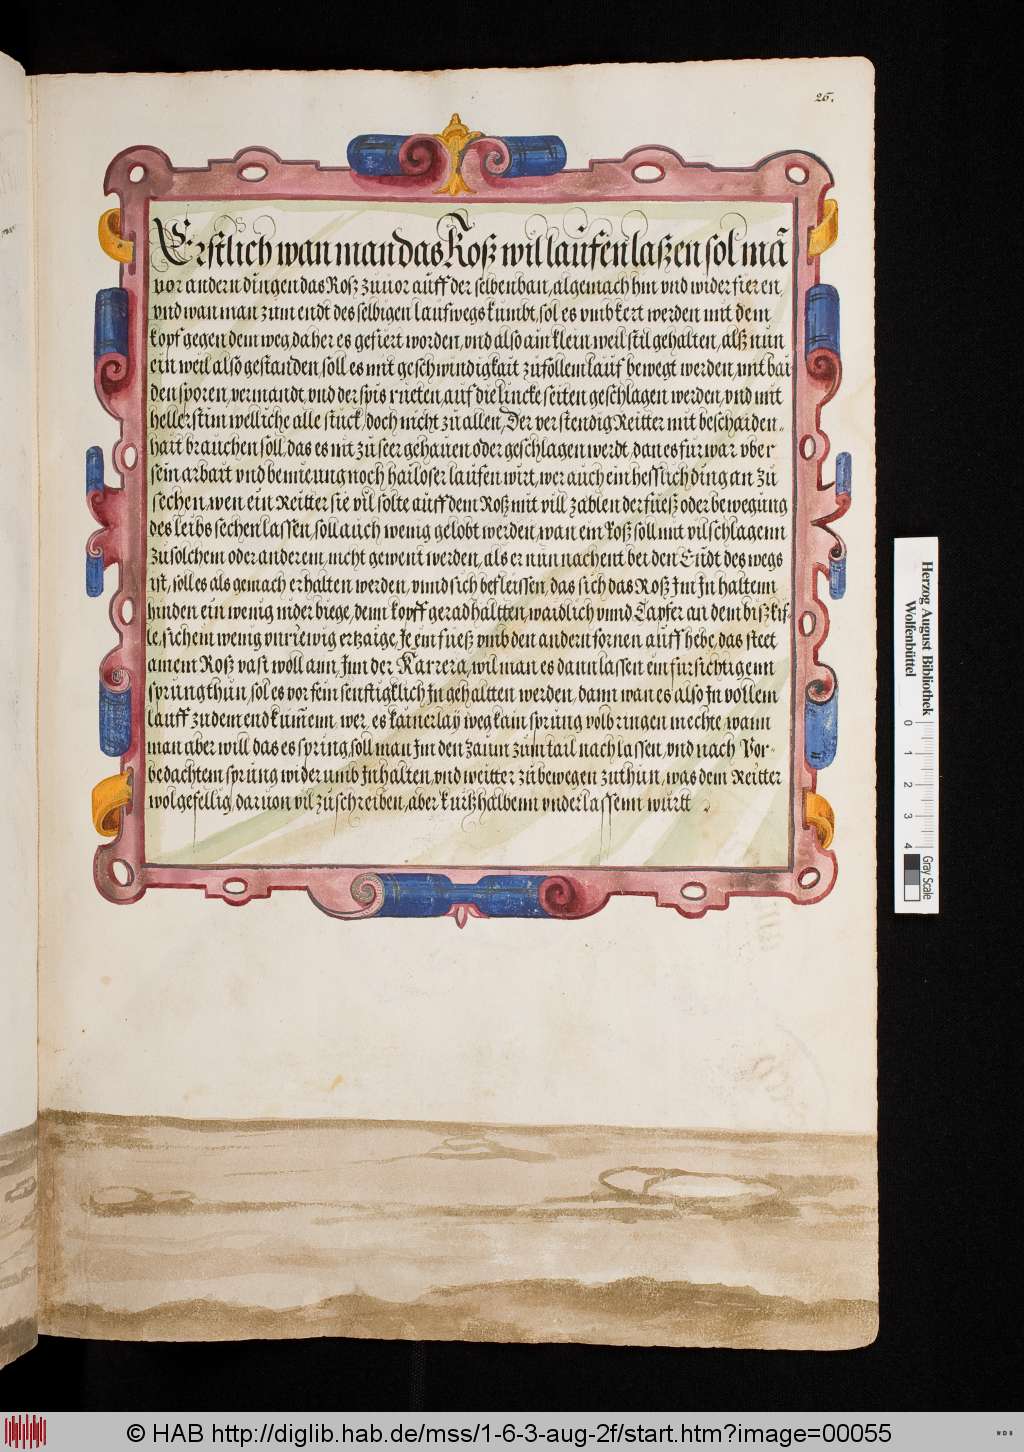 26.
Erstlich wan man das Roß wil laufen laßen sol mā
vor andern dingen das Roß zuuor auff der selben ban, algemach hin vnd wider fieren,
vnd wan man zum endt des selbigen laufwegs kumbt, sol es vmbkert werden mit dem
kopf gegen dem weg, daher es gefiert worden, vnd also ain klein weil stil gehalten, alß nun
ein weil also gestanden, soll es mit geschwindigkait zu follem lauf bewegt werden, mit bai
den sporen, vermandt, vnd der spis rueten, auf die lincke seiten geschlagen werden, vnd mit
heller stim welliche alle stuck, doch nicht zu allen, Der verstendig Reitter mit beschaiden-
hait brauchen soll, das es nit zu seer gehauen oder geschlagen werdt, dan es fur war vber
sein arbait vnd bemieung noch hailoser laufen wirt, wer auch ein hesslich ding an zu
sechen, wen ein Reitter sie vil solte auff dem Roß mit vill zablen der fieß oder bewegung
des leibs sechen lassen, soll auch wenig gelobt werden, wan ein Roß soll mit vil schlagenn
zu solchem oder anderem nicht gewent werden, als er nun nachent bei den Endt des wegs
ist, soll es als gemach erhalten werden, vnnd sich befleissen, das sich das Roß Im In haltenn
hinden ein wenig nider biege, denn kopff gerad haltten, waidlich vnnd Tapfer an dem biß kif-
fle, sich ein wenig vnriewig ertzaige, Je ein fueß vmb den andern fornen auff hebe, das steet
ainem Roß vast woll ann, Inn der Karrera, wil man es dann lassen ein fursichtigenn
sprung thun, sol es vor fein senftigklich In gehaltten werden, dann wan es also In vollem
lauff zu dem end kumenn, wer, es kainerlay weg kain sprung volbringen mechte, wann
man aber will das es spring, soll man Im den Zaum zum tail nach lassen, vnd nach Vor-
bedachtem sprung wider umb In halten, vnd weitter zu bewegen zuthun, was dem Reitter
wolgefellig, daruon vil zu schreiben, aber kurtz halbenn vnderlassenn wurtt
Herzog August Bibliothek
Wolfenbüttel
0 1 2 3 4
Gray Scale
© HAB http://diglib.hab.de/mss/1-6-3-aug-2f/start.htm?image=00055